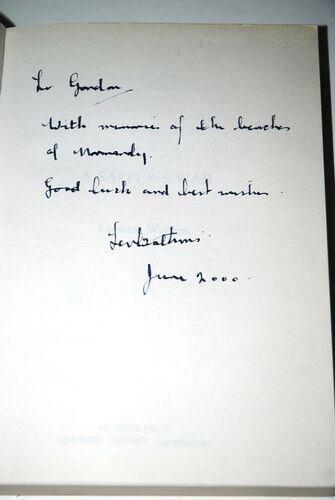 To Gordon
With memories of the beaches
of Normandy.
Good luck and best wishes.
June 2000.